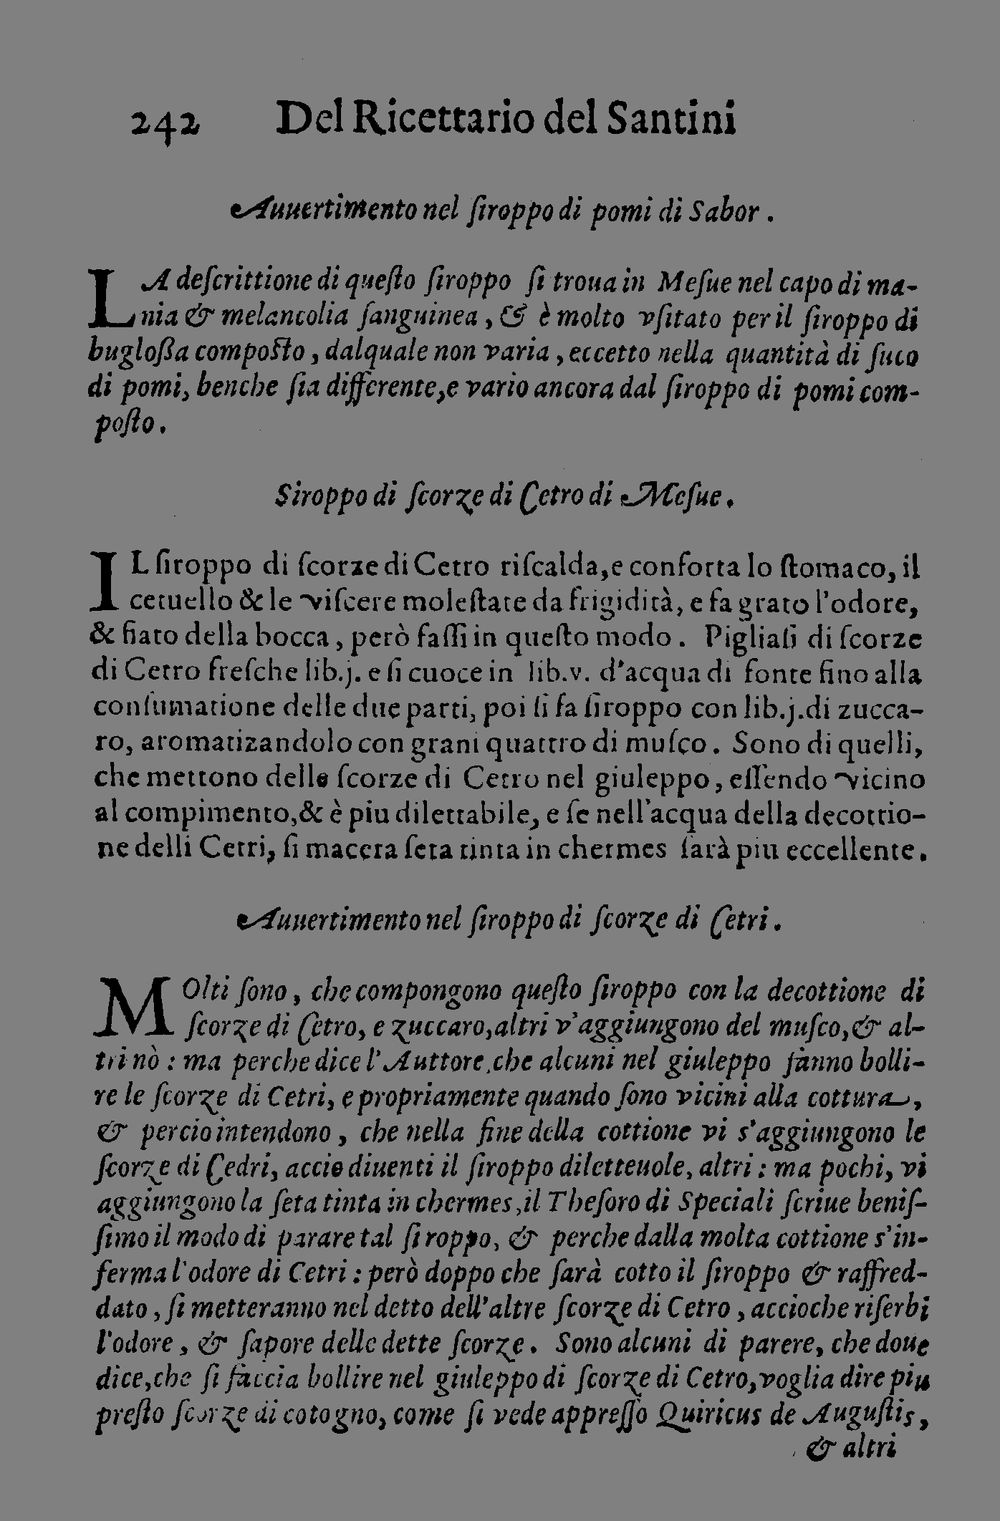 242 Del Ricettario del Santini
Auuertimento nel ſiroppo di pomi di Sabor .
LA deſcrittione di queſto ſiroppo ſi troua in Meſue nel capo di ma-
nia & melancolia ſanguinea , & è molto vſitato per il ſiroppo di
bugloßa compoſto , dalquale non varia , eccetto nella quantità di ſuco
di pomi, benche ſia differente,e vario ancora dal ſiroppo di pomi com-
poſto .
Siroppo di ſcorze di Cetro di Meſue .
IL ſiroppo di ſcorze di Cetro riſcalda,e conforta lo ſtomaco, il
ceruello & le viſcere moleſtate da frigidità, e fa grato l'odore,
& fiato della bocca , però faſſi in queſto modo . Pigliaſi di ſcorze
di Cetro freſche lib.j. e ſi cuoce in lib.v. d'acqua di fonte fino alla
conſumatione delle due parti, poi ſi fa ſiroppo con lib.j.di zucca-
ro, aromatizandolo con grani quattro di muſco . Sono di quelli,
che mettono delle ſcorze di Cetro nel giuleppo , eſſendo vicino
al compimento,& è piu dilettabile, e ſe nell'acqua della decottio-
ne delli Cetri, ſi macera ſeta tinta in chermes ſarà piu eccellente .
Auuertimento nel ſiroppo di ſcorze di Cetri .
MOlti ſono , che compongono queſto ſiroppo con la decottione di
ſcorze di Cetro, e zuccaro,altri v'aggiungono del muſco,& al-
tri nò : ma perche dice l'Auttore,che alcuni nel giuleppo fanno bolli-
re le ſcorze di Cetri, e propriamente quando ſono vicini alla cottura ,
& percio intendono , che nella fine della cottione vi s'aggiungono le
ſcorze di Cedri, accio diuenti il ſiroppo diletteuole, altri : ma pochi, vi
aggiungono la ſeta tinta in chermes ,il Theſoro di Speciali ſcriue beniſ-
ſimo il modo di parare tal ſiroppo, & perche dalla molta cottione s'in-
ferma l'odore di Cetri : però doppo che ſarà cotto il ſiroppo & raffred-
dato , ſi metteranno nel detto dell'altre ſcorze di Cetro , accioche riſerbi
l'odore , & ſapore delle dette ſcorze . Sono alcuni di parere, che doue
dice,che ſi faccia bollire nel giuleppo di ſcorze di Cetro,voglia dire piu
preſto ſcorze di cotogno, come ſi vede appreſſo Quiricus de Auguſtis ,
& altri